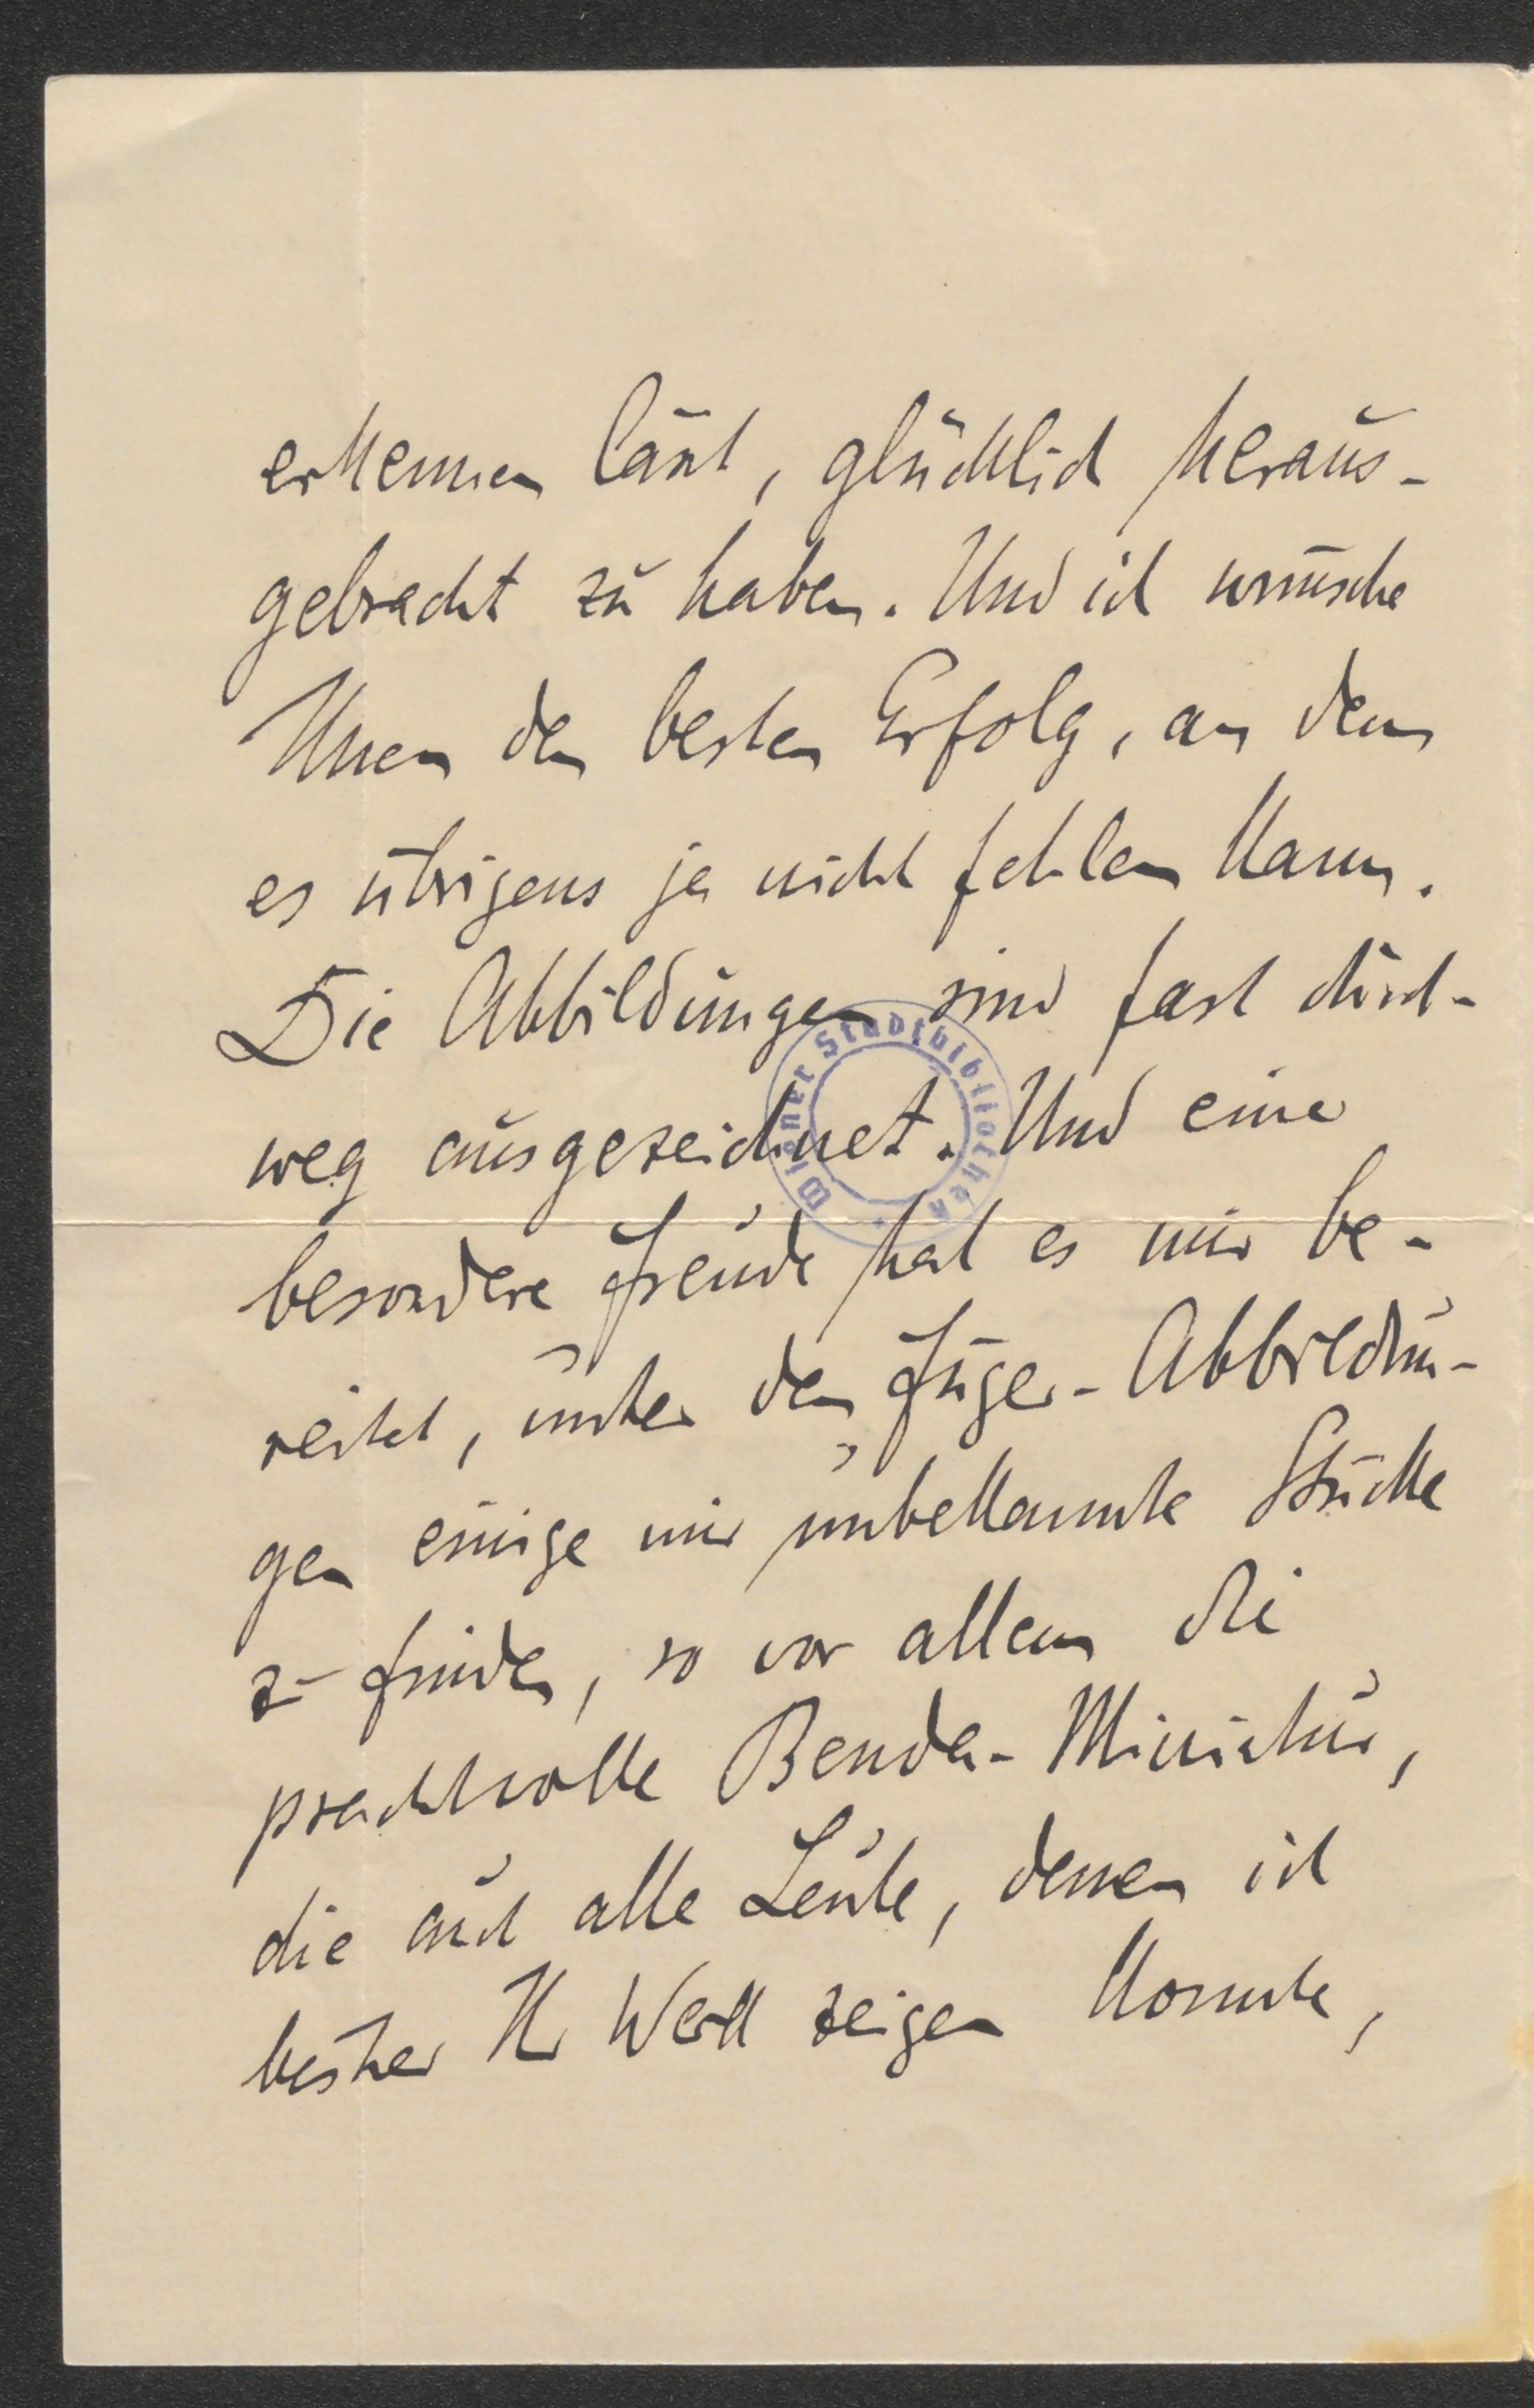 erkennen läßt, glücklich heraus-
gebracht zu haben. Und ich wünsche
Ihnen den besten Erfolg, an dem
es übrigens ja nicht fehlen kann.
Die Abbildungen sind fast durch-
weg ausgezeichnet. Und eine
besondere Freude hat es mir be-
reitet, unter den Füger-Abbildun-
gen einige mir unbekannte Stücke
zu finden, so vor allem die
prachtvolle Benda-Miniatur,
die auch alle Leute, denen ich
bisher Ihr Werk zeigen konnte,
Wiener Stadtbibliothek